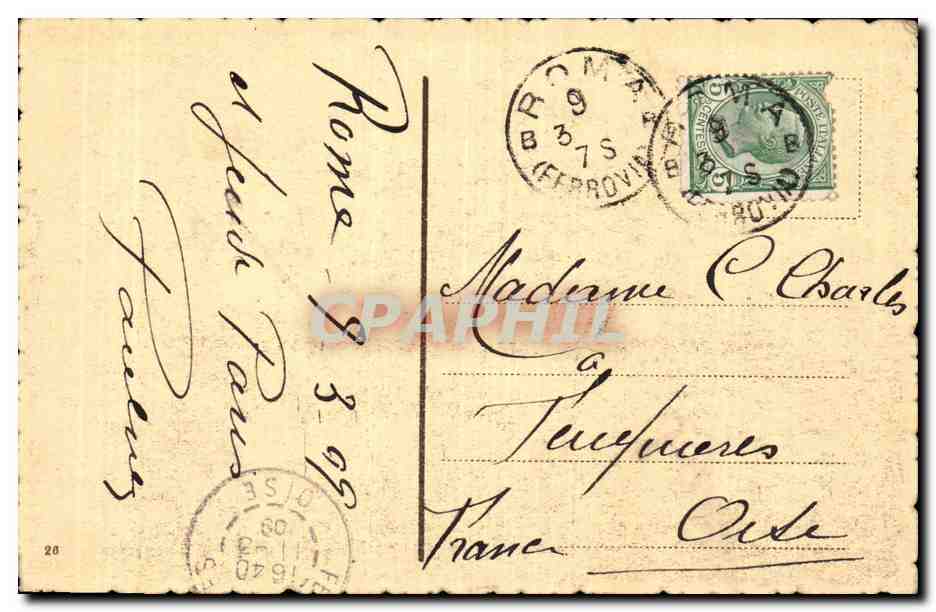 Rome - 8 3 09
et jeudi Paris
ROMA
9
3
7 S
B
(FERROVIA)
ROMA
9
3
7 S
B
B
(FERROVIA)
POSTE ITALIANE
CENTESIMI
5
5
Madame C Charles
à
Feuquieres
France Oise
CPAPHIL
OISE
16 40
11
3
09
26